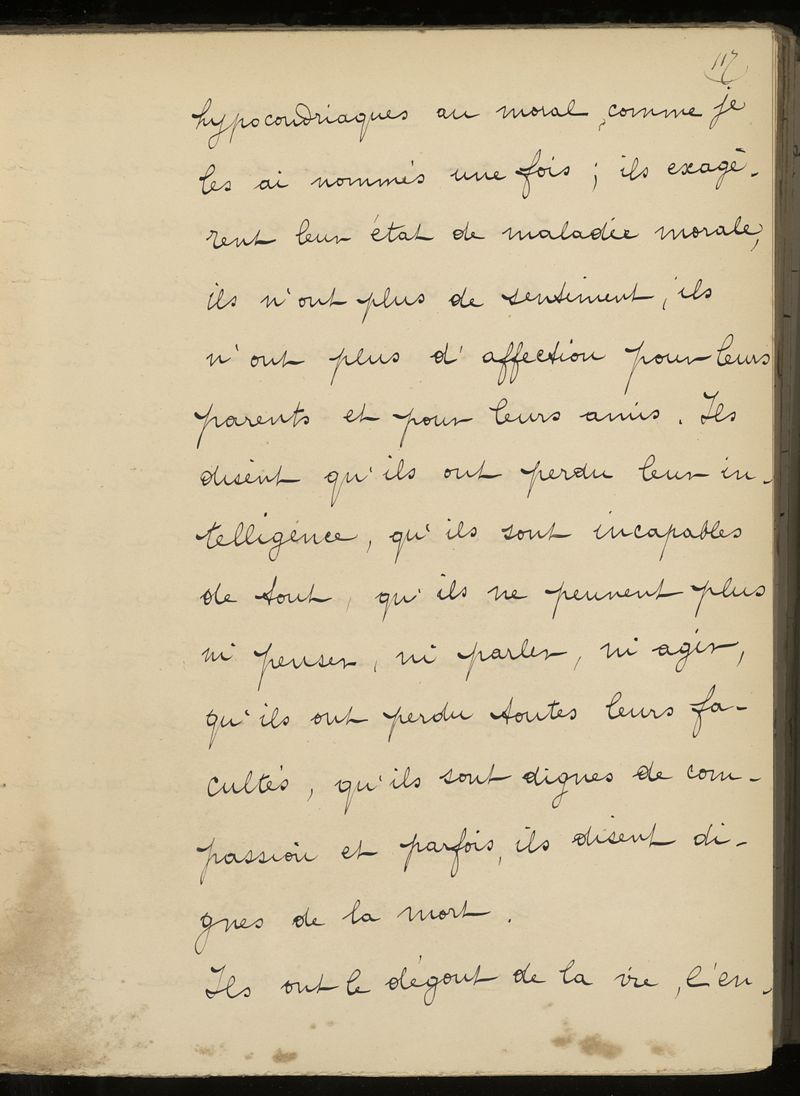 117
hypocondriaques au moral, comme je
les ai nommés une fois ; ils exagè-
rent leur état de maladie morale,
ils n'ont plus de sentiment, ils
n'ont plus d'affection pour leurs
parents et pour leurs amis. Ils
disent qu'ils ont perdu leur in-
telligence, qu'ils sont incapables
de tout, qu'ils ne peuvent plus
ni penser, ni parler, ni agir,
qu'ils ont perdu toutes leurs fa-
cultés, qu'ils sont dignes de com-
passion et parfois, ils disent di-
gnes de la mort.
Ils ont le dégout de la vie, l'en-